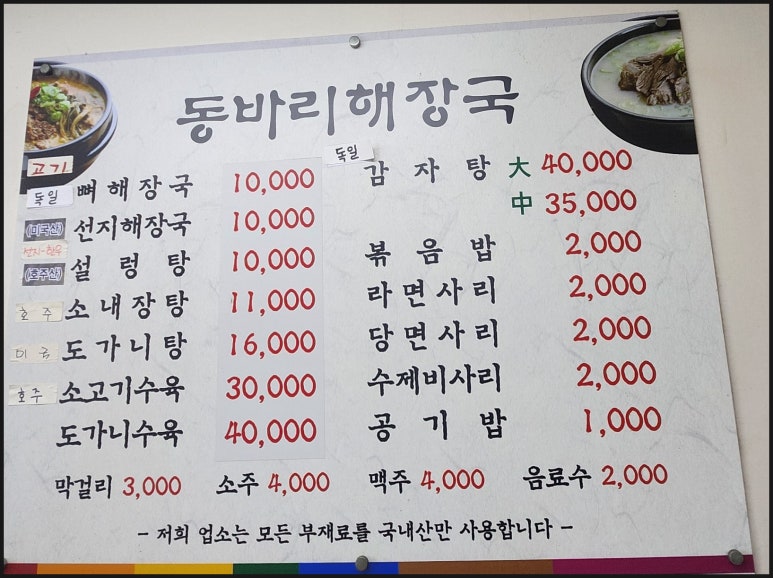 동바리해장국
고기
독일 뼈해장국 10,000
(미국산) 선지해장국 10,000
선지-한우
(호주산) 설렁탕 10,000
호주 소내장탕 11,000
미국 도가니탕 16,000
호주 소고기수육 30,000
도가니수육 40,000
독일
감자탕 大 40,000
中 35,000
볶음밥 2,000
라면사리 2,000
당면사리 2,000
수제비사리 2,000
공기밥 1,000
막걸리 3,000 소주 4,000 맥주 4,000 음료수 2,000
- 저희 업소는 모든 부재료를 국내산만 사용합니다 -